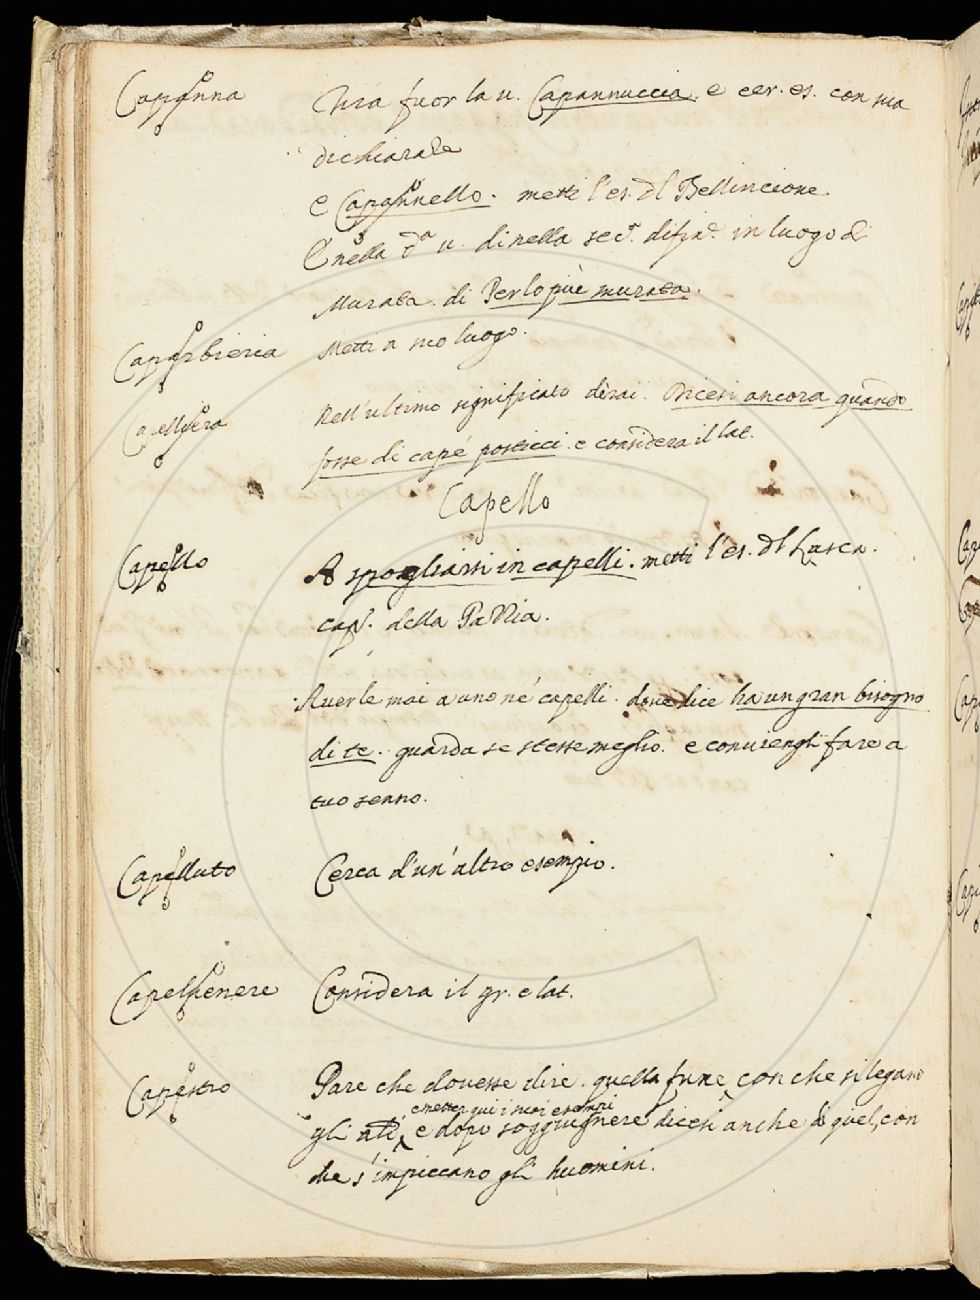 Capanna Tira fuor la u. Capannuccia. e cer. es. con sua
dichiaraze
e Capannello. metti l'es. dl Bellincione
E nella da u. di nella seca. difize. in luogo di
Murata. di Perlopiù murata.
Caparbieria Metti a suo luogo.
Capelliera Nell'ultimo significato dirai. Dicesi ancora quando
fosse di cape' posticci. e considera il lat.
Capello
Capello A spogliarsi in capelli. metti l'es. dl Lasca.
cap. della
Auerle mai a uno ne' capelli. doue dice ha un gran bisogno
di te. guarda se stesse meglio. e conuiengli fare a
tuo senno.
Capelluto Cerca d'un'altro esempio.
Capeluenere Considera il gr. e lat.
Capestro Pare che douesse dire. quella fune, con che si legano
e metter qui i suoi esempi
gli ati, e dopo soggiugnere dicesi anche di quel, con
che s'impiccano gli huomini.